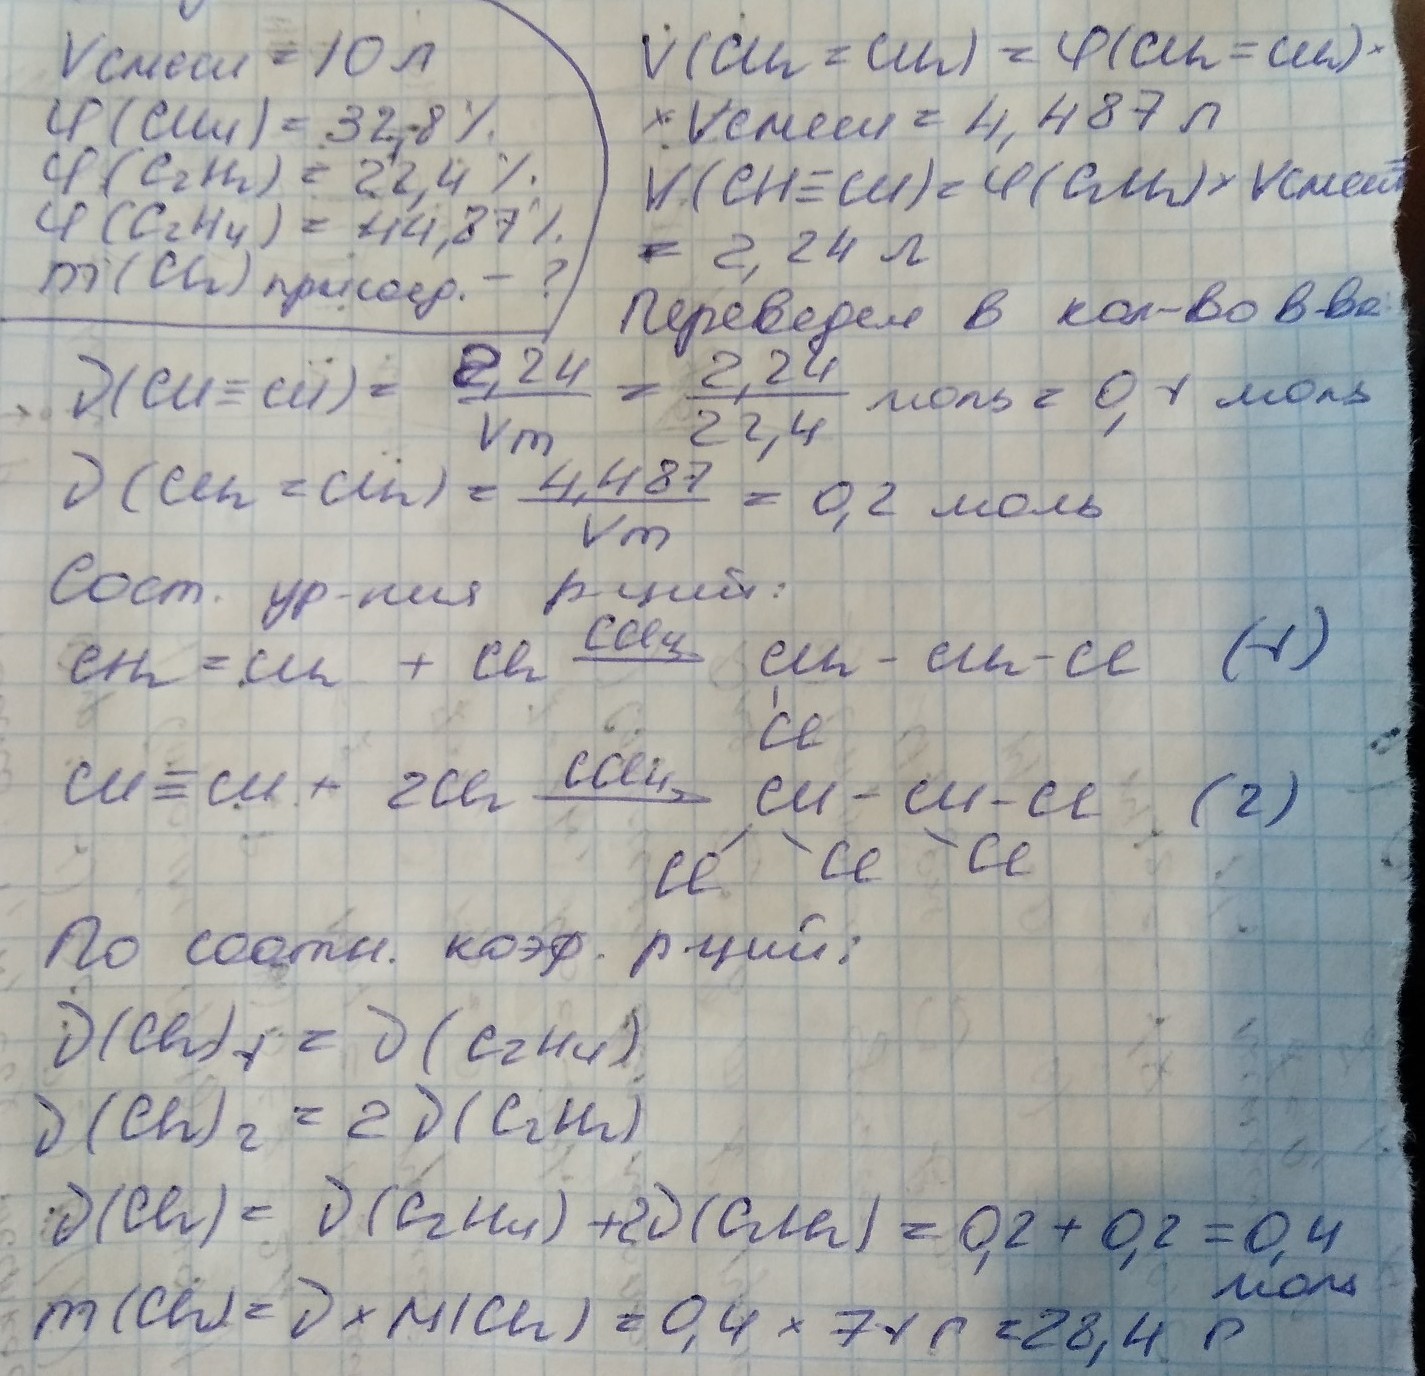 Vсмеси = 10 л
φ(CH4) = 32,8%.
φ(C2H2) = 22,4%.
φ(C2H4) = 44,87%.
m(Cl2) присоед. - ?
V(CH2=CH2) = φ(CH2=CH2)×
×Vсмеси = 4,487 л
V(CH≡CH) = φ(C2H2)×Vсмеси
= 2,24 л
Переведем в кол-во в-ва
ν(CH≡CH) = 2,24/Vm = 2,24/22,4 моль = 0,1 моль
ν(CH2=CH2) = 4,487/Vm = 0,2 моль
Сост. ур-ния р-ций:
CH2=CH2 + Cl2 CCl4→ CH2-CH2-Cl (1)
Cl
CH≡CH + 2Cl2 CCl4→ CH-CH-Cl (2)
Cl Cl Cl
По соотн. коэф. р-ций:
ν(Cl2)1 = ν(C2H4)
ν(Cl2)2 = 2ν(C2H2)
ν(Cl2) = ν(C2H4) + 2ν(C2H2) = 0,2 + 0,2 = 0,4
моль
m(Cl2) = ν×M(Cl2) = 0,4 × 71 г = 28,4 г